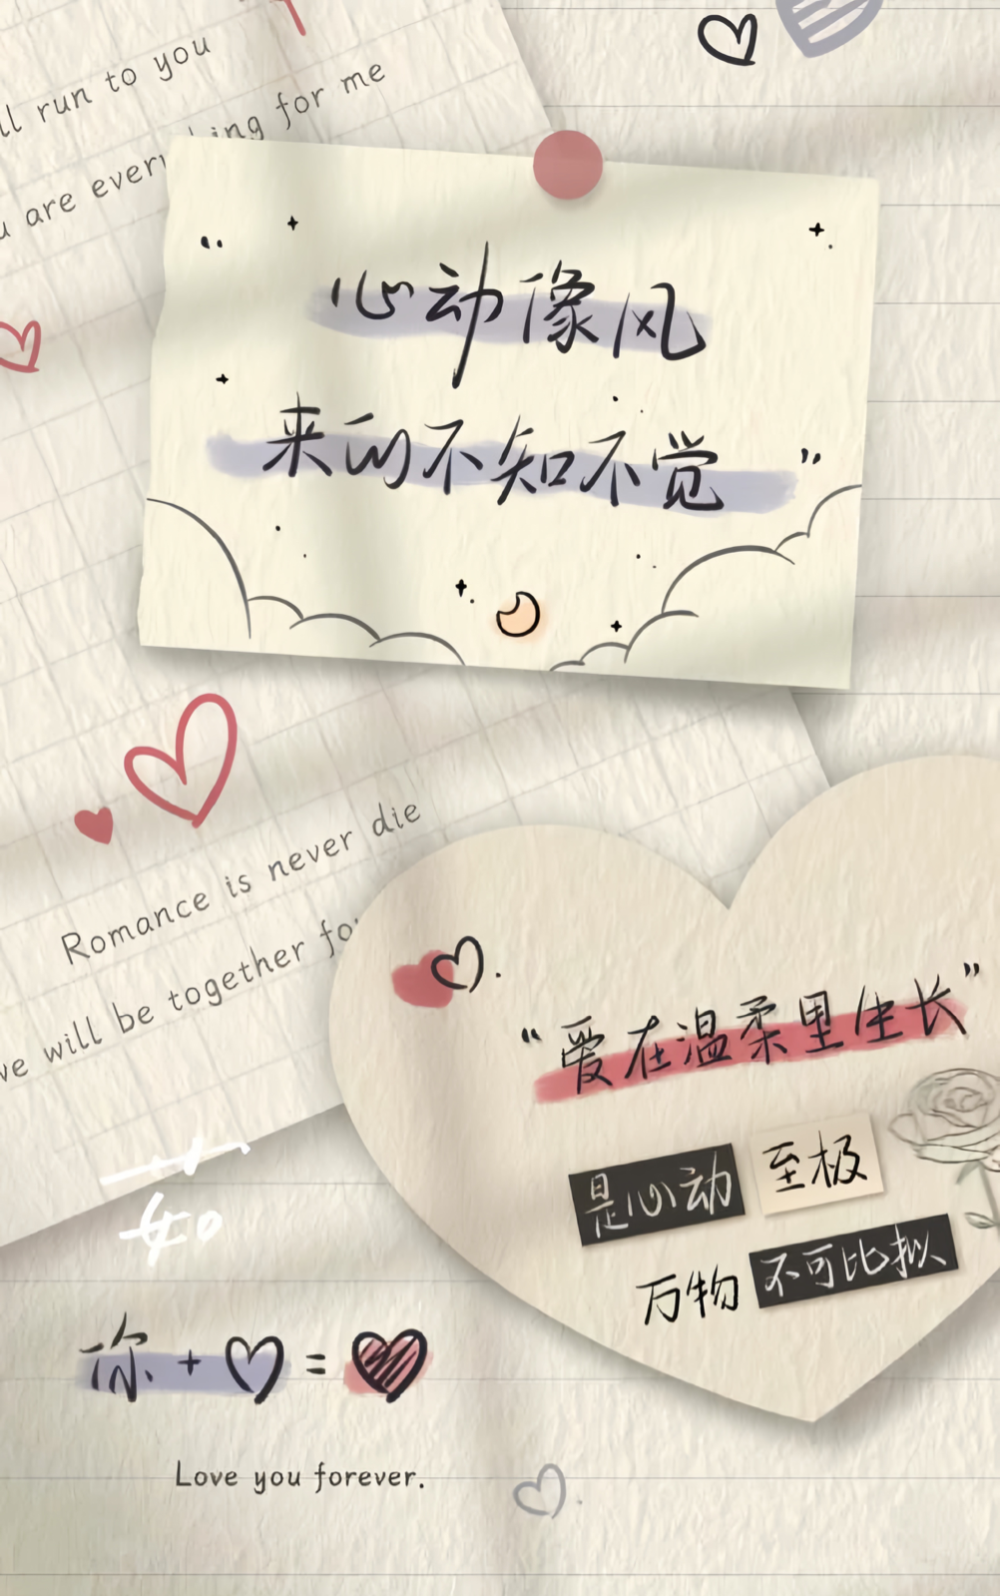 ll run to you
are everything for me
“心动像风
来的不知不觉”
Romance is never die
we will be together for
“爱在温柔里生长”
是心动 至极
万物 不可比拟
你 + ♡ = ♥
Love you forever.